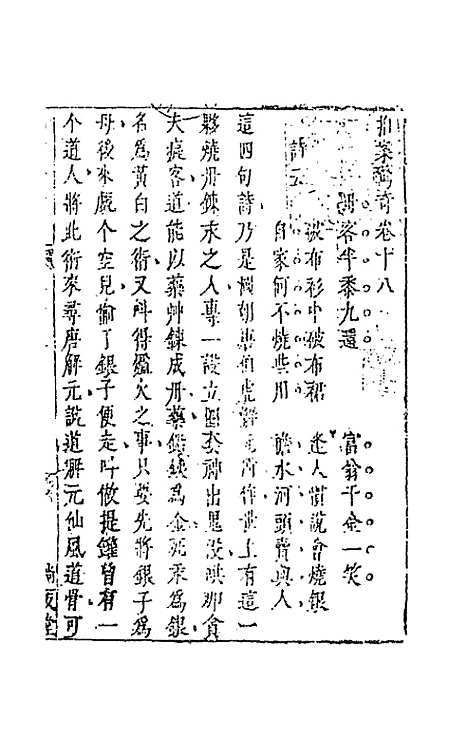 拍案驚奇卷十八
客半黍九還
富翁千金一笑
詩云
破布衫巾破布裙
逢人慣說會燒銀
自家何不燒些用
擔水河頭賣與人
這四句詩乃是國朝唐伯虎解元所作世上有這一
夥燒丹鍊汞之人專一設立圈套神出鬼沒哄那貪
夫癡客道能以藥艸鍊成丹藥鉛鐵為金死汞為銀
名為黃白之術又呌得爐火之事只要先將銀子為
母後來覷个空兒偷了銀子便走呌做提罐曾有一
个道人將此術來尋唐解元說道解元仙風道骨可
尚友堂